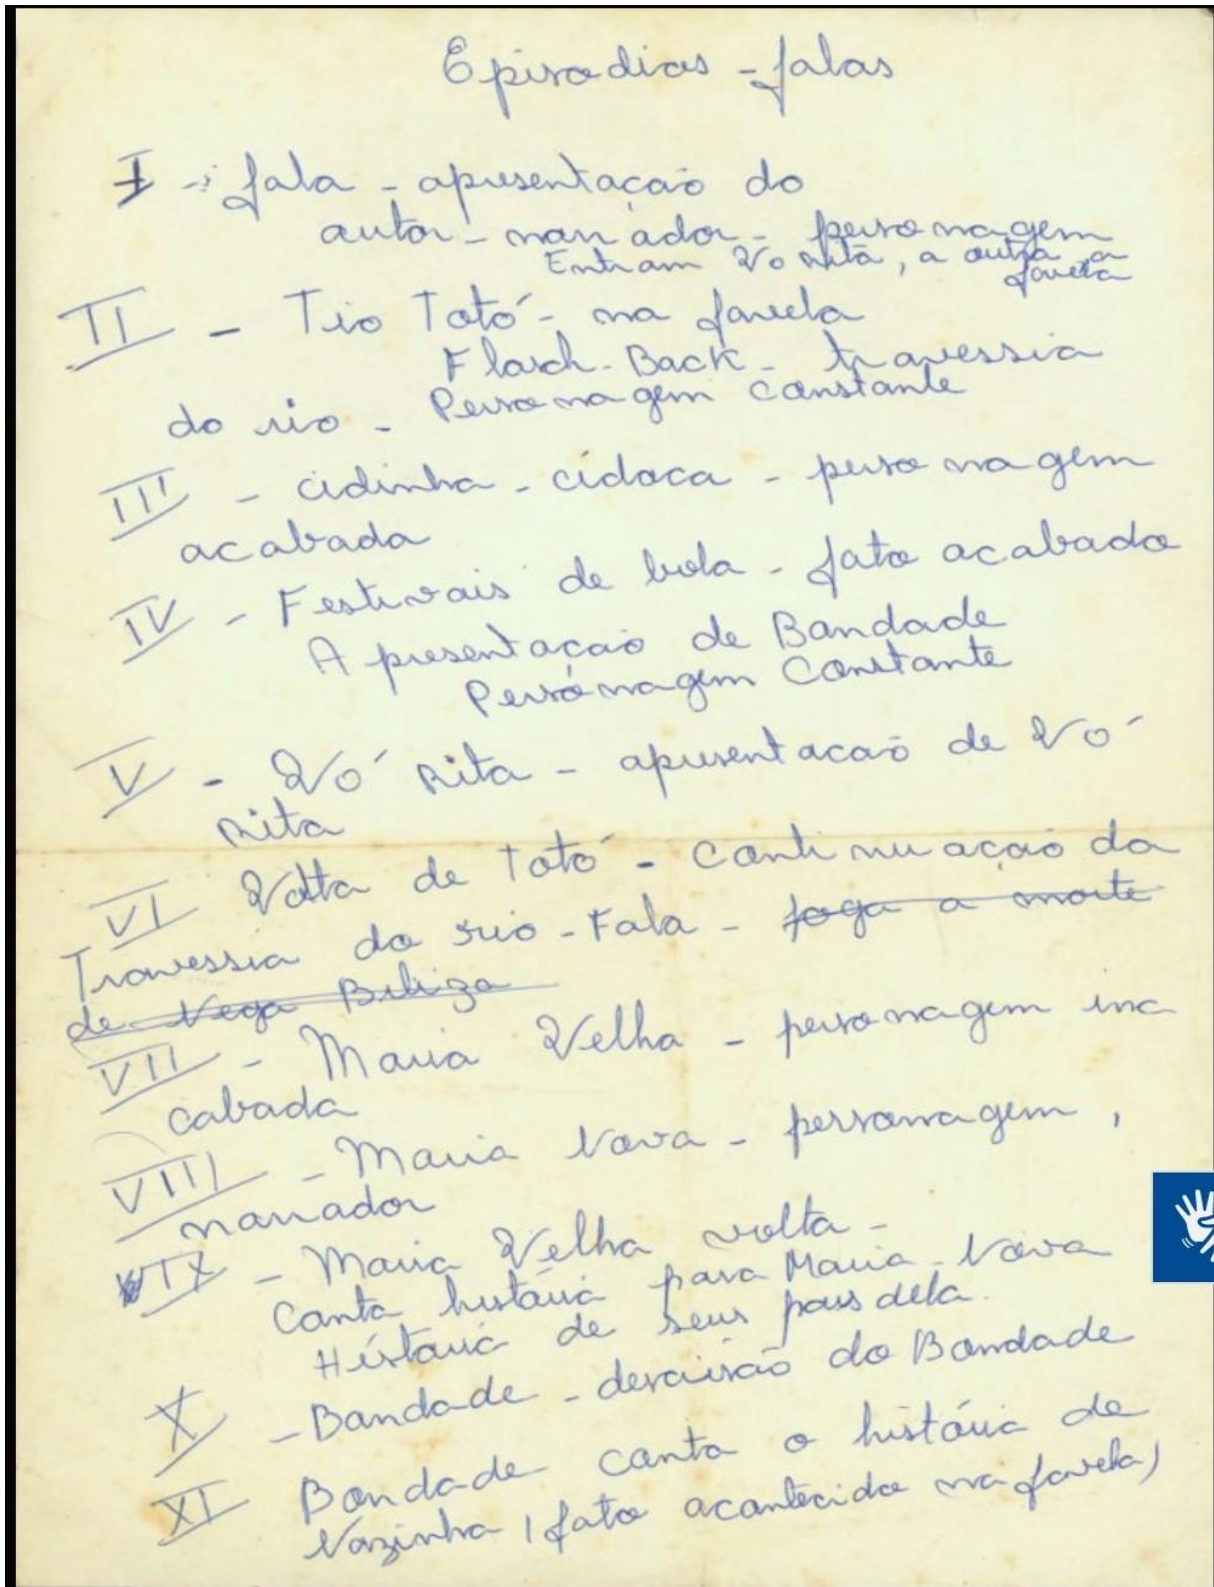 Episodios - falas
I - fala - apresentação do
autor - narrador - personagem
Entram Vo Rita, a outra, a
favela
II - Tio Totó - na favela
Flasch-Back - travessia
do rio - Personagem constante
III - cidinha - cidoca - personagem
acabada
IV - Festivais de bola - fato acabado
Apresentação de Bondade
Personagem Constante
V - Vó Rita - apresentacão de Vó
Rita
VI Volta de Totó - Continuação da
Travessia do rio - Fala - joga a morte
de Nega Beliza
VII - Maria Velha - personagem ina
cabada
VIII - Maria Nova - personagem,
narrador
IX - Maria Velha volta -
Conta história para Maria-Nova
História de seus pais dela.
X - Bondade - descrisão do Bondade
XI Bondade conta a história de
Nazinha (fato acontecido na favela)